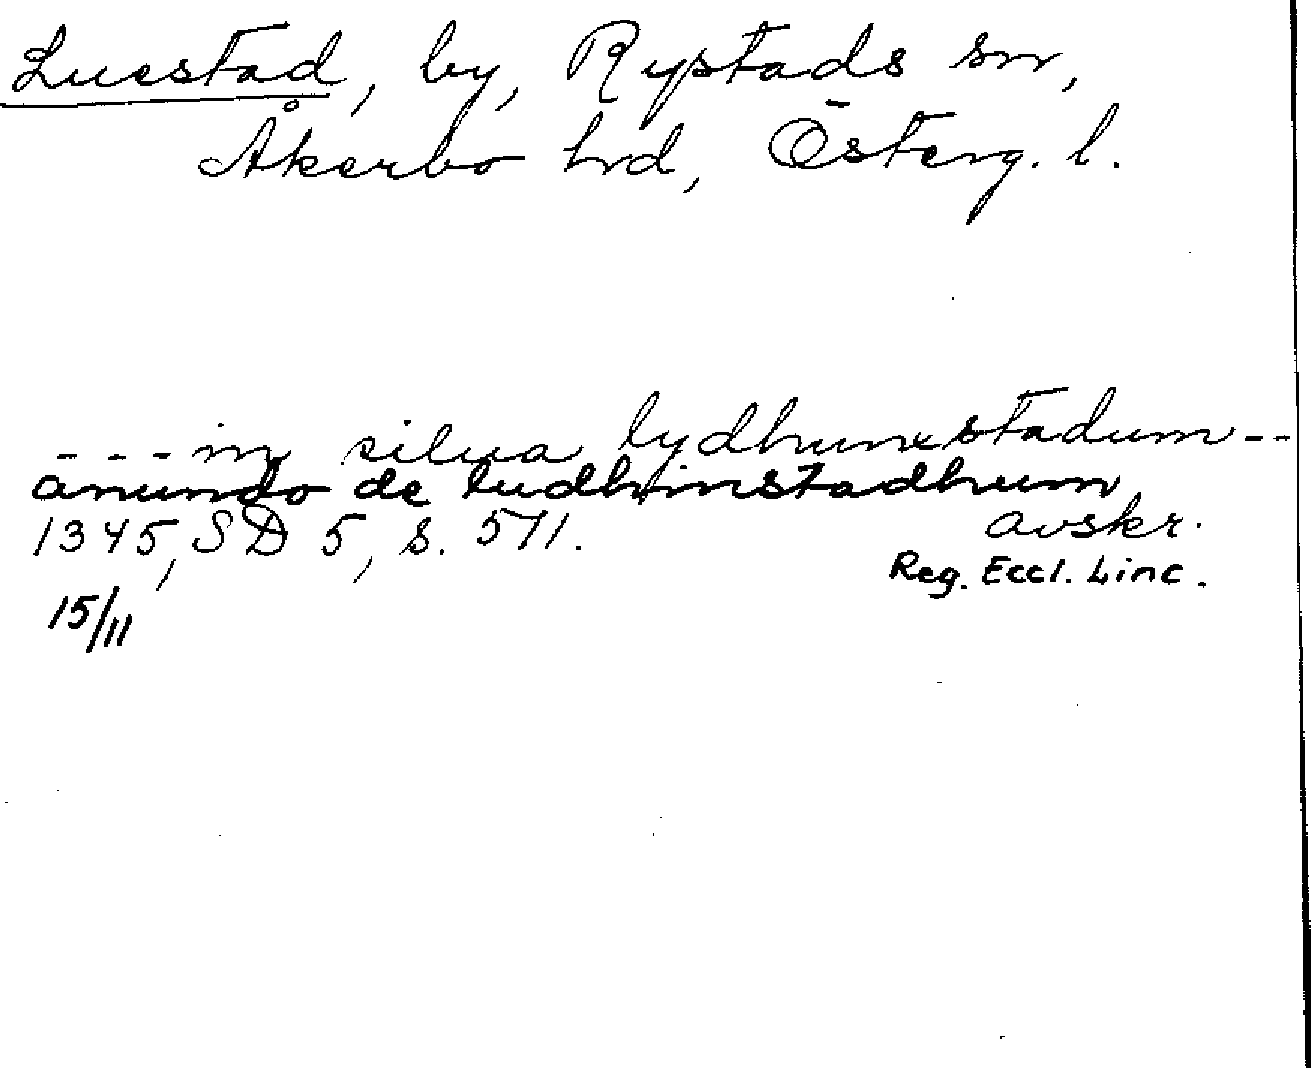 Luestad, by, Rystads sn,
Åkerbo hrd, Österg. l.
---in silua lydhunxstadum--
anundo de ludhimstadhum,
1345, SD 5, s. 571. avskr.
Reg. Eccl. Linc.
15/11